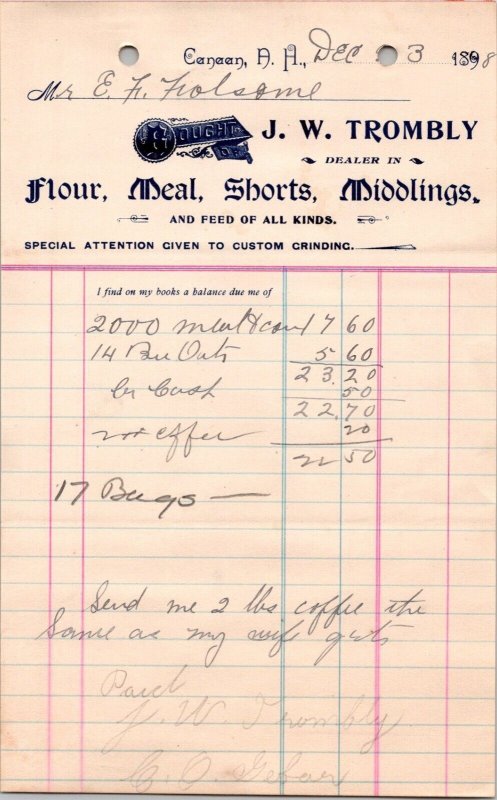 Canaan, N. H., Dec 3 1898
Mr E. F. Folsome
BOUGHT OF J. W. TROMBLY
DEALER IN
Flour, Meal, Shorts, Middlings,
AND FEED OF ALL KINDS.
SPECIAL ATTENTION GIVEN TO CUSTOM GRINDING.
I find on my books a balance due me of
2000 meal & corn 17 60
14 Bu Oats 5 60
23.20
by Cash 50
22,70
20
22 50
17 Bags —
Send me 2 lbs coffee the
same as my wife gets
Paid
J. W. Trombly
C. O.